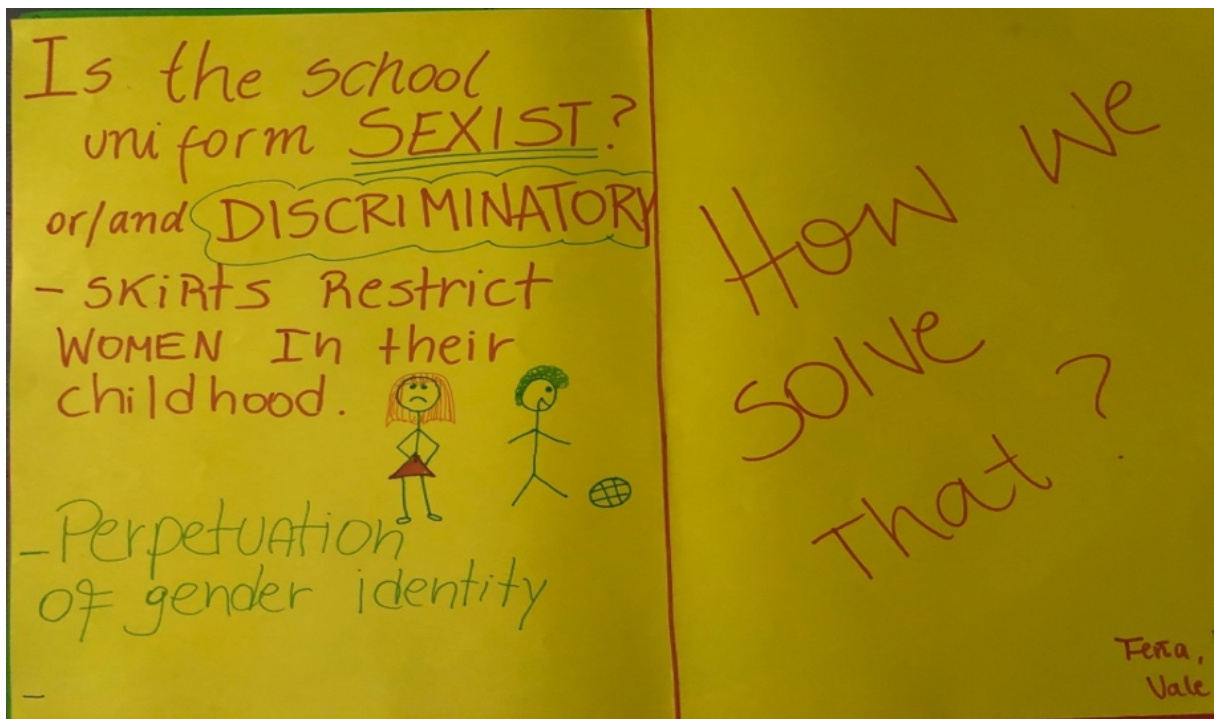 Is the school
uniform SEXIST?
or/and DISCRIMINATORY
- SKiRtS Restrict
WOMEN In their
childhood.
- Perpetuation
OF gender identity
-
How we
solve
That?
Vale